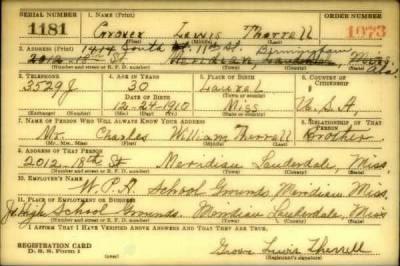 SERIAL NUMBER
1. NAME (Print)
ORDER NUMBER
1181
Grover Lewis Therrell
1073
(First) (Middle) (Last)
2. ADDRESS (Print) 1414 South St. Birmingham
2012-18th St Meridian, Miss Ala.
(Number and street or R. F. D. number) (Town) (County) (State)
3. TELEPHONE
4. AGE IN YEARS
5. PLACE OF BIRTH
6. COUNTRY OF CITIZENSHIP
3529 J
30
Laurel
DATE OF BIRTH
12-24-1910
Miss
U.S.A
(Exchange) (Number)
(Mo.) (Day) (Yr.)
(State or country)
7. NAME OF PERSON WHO WILL ALWAYS KNOW YOUR ADDRESS
8. RELATIONSHIP OF THAT PERSON
Mr. Charles William Therrell
Brother
(Mr., Mrs., Miss) (First) (Middle) (Last)
9. ADDRESS OF THAT PERSON
2012-18th St Meridian Lauderdale, Miss.
(Number and street or R. F. D. number) (Town) (County) (State)
10. EMPLOYER'S NAME
W.P.A. School Grounds, Meridian Miss.
11. PLACE OF EMPLOYMENT OR BUSINESS
High School Grounds. Meridian Lauderdale, Miss
(Number and street or R. F. D. number) (Town) (County) (State)
I AFFIRM THAT I HAVE VERIFIED ABOVE ANSWERS AND THAT THEY ARE TRUE.
REGISTRATION CARD
D. S. S. Form 1
Grover Lewis Therrell
(Registrant's signature)